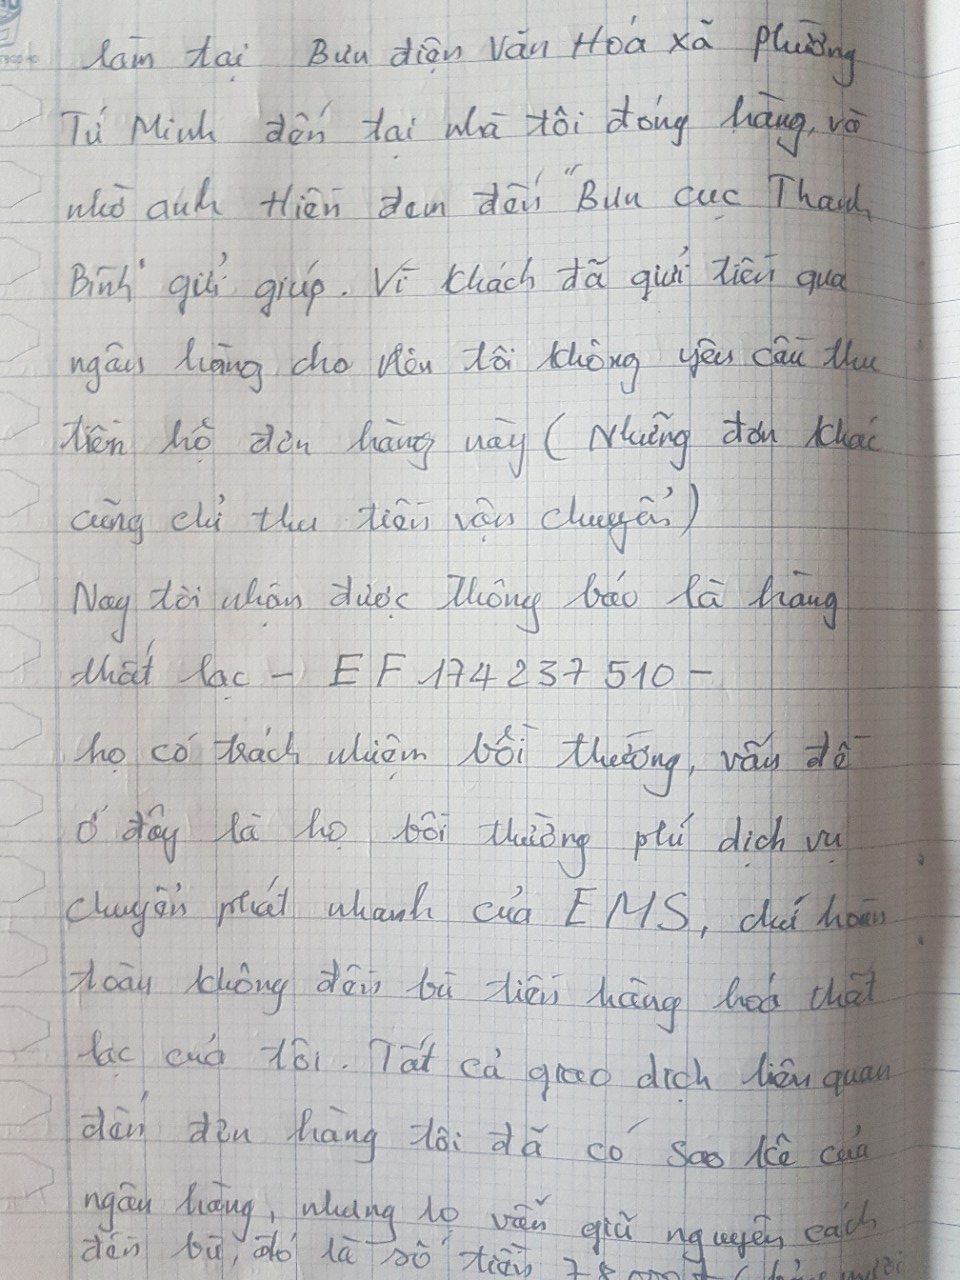 làm tại Bưu điện Văn Hoá xã Phường
Tứ Minh đến tại nhà tôi đóng hàng, và
nhờ anh Hiền đem đến "Bưu cục Thanh
Bình" gửi giúp. Vì khách đã gửi tiền qua
ngân hàng cho nên tôi không yêu cầu thu
tiền hộ đơn hàng này (Những đơn khác
cũng chỉ thu tiền vận chuyển)
Nay tôi nhận được thông báo là hàng
thất lạc - EF 174237510 -
họ có trách nhiệm bồi thường, vấn đề
ở đây là họ bồi thường phí dịch vụ
chuyển phát nhanh của EMS, chứ hoàn
toàn không đền bù tiền hàng hoá thất
lạc của tôi. Tất cả giao dịch liên quan
đến đơn hàng tôi đã có sao kê của
ngân hàng, nhưng họ vẫn giữ nguyên cách
đền bù, đó là số tiền